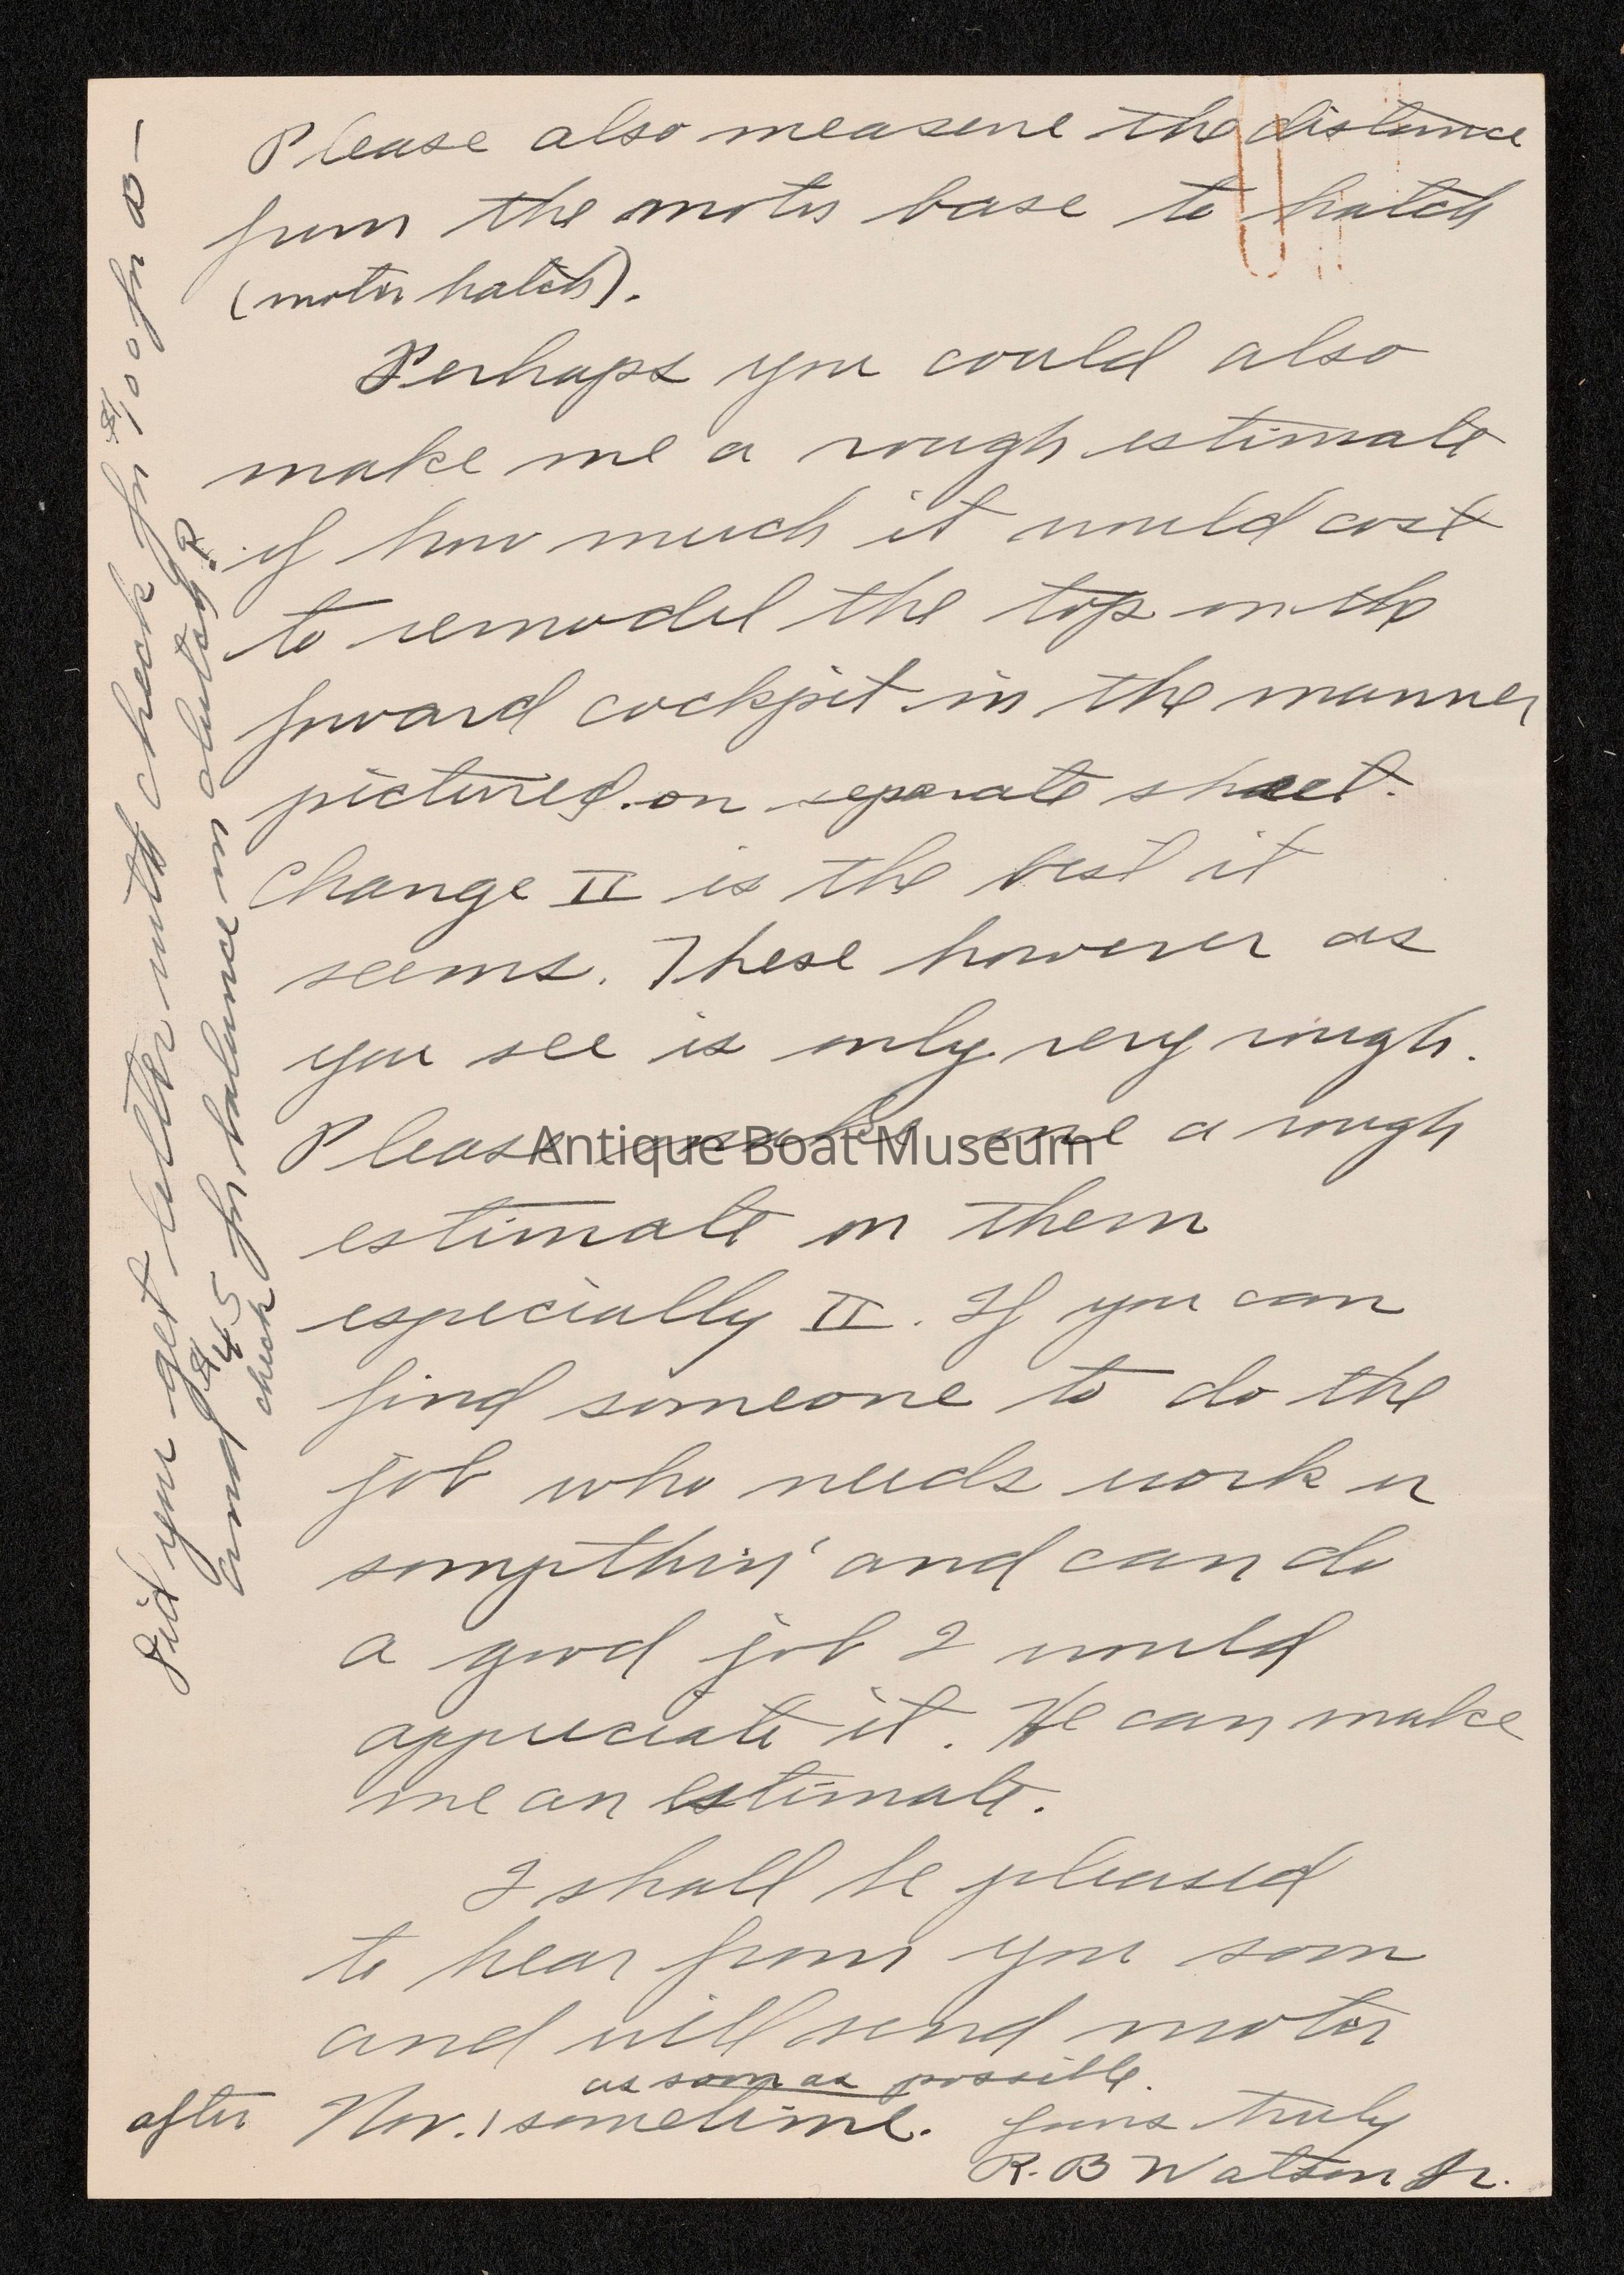 Please also measure the distance
from the motor base to hatch
(motor hatch).
Perhaps you could also
make me a rough estimate
of how much it would cost
to remodel the top on the
forward cockpit in the manner
pictured on separate sheet.
Change II is the best it
seems. These however as
you see is only very rough.
Please make me a rough
estimate on them
especially II. If you can
find someone to do the
job who needs work or
sompthin' and can do
a good job I would
appreciate it. He can make
me an estimate.
I shall be pleased
to hear from you soon
and will send motor
as soon as possible.
after Nov. 1 sometime. Yours truly
R. B Watson Jr.
Did you get letter with check for $100 for a—
and $45 for balance on
check
Antique Boat Museum